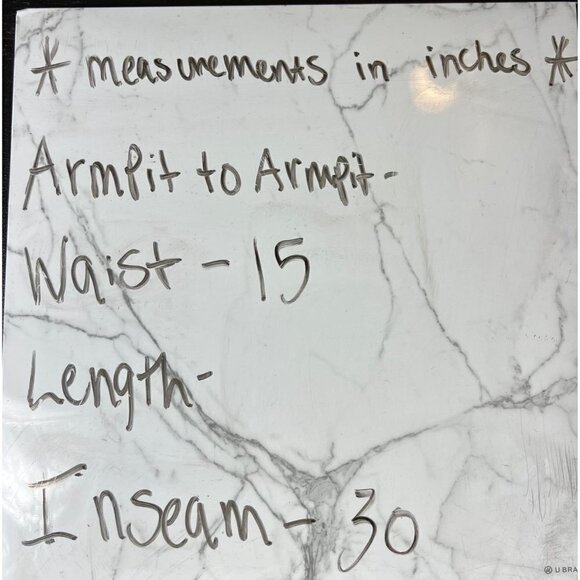 * measurements in inches *
Armpit to Armpit -
Waist - 15
Length -
Inseam - 30
U BRA